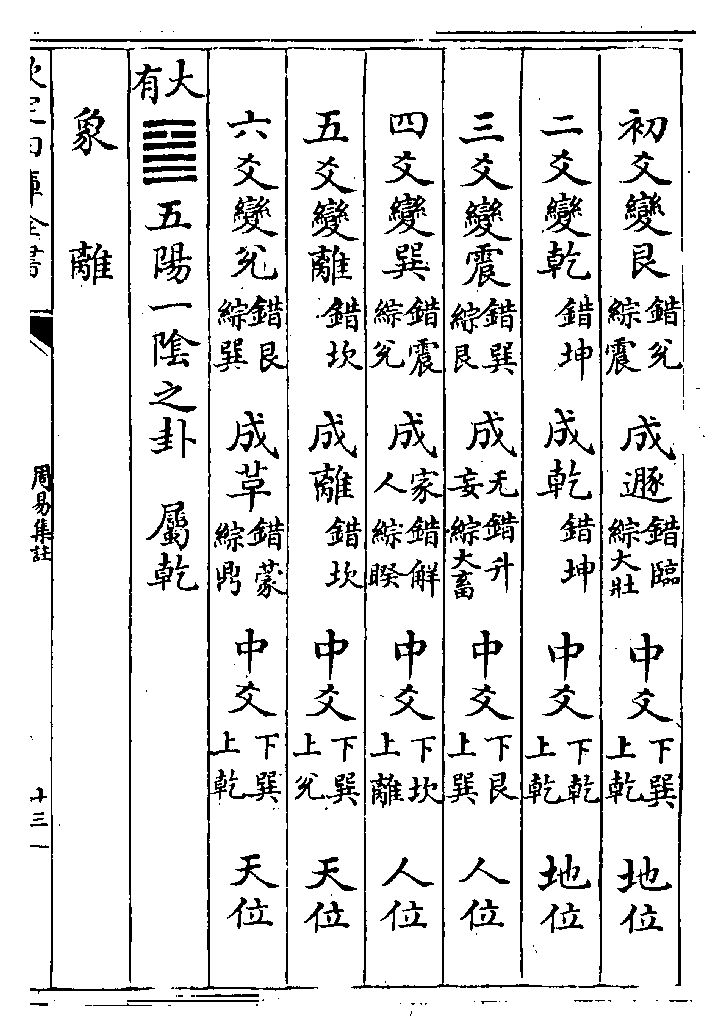 初爻變艮錯兊綜震成遯錯臨綜大壯中爻下巽上乾地位
二爻變乾錯坤成乾錯坤中爻下乾上乾地位
三爻變震錯巽綜艮成无妄錯升綜大畜中爻下艮上巽人位
四爻變巽錯震綜兊成家人錯解綜睽中爻下坎上離人位
五爻變離錯坎成離錯坎中爻下巽上兊天位
六爻變兊錯艮綜巽成革錯蒙綜鼎中爻下巽上乾天位
大有䷍五陽一陰之卦 屬乾
象 離
欽定四庫全書
周易集註
十三